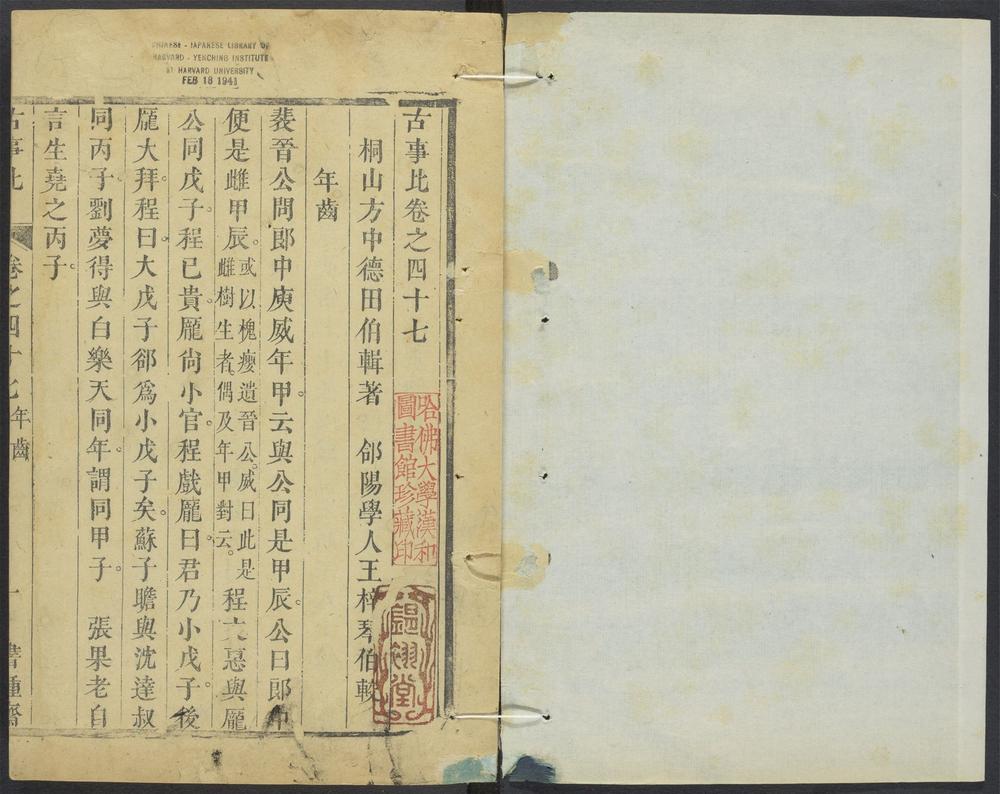 CHINESE - JAPANESE LIBRARY OF
HARVARD - YENCHING INSTITUTE
AT HARVARD UNIVERSITY
FEB 18 1941
古事比卷之四十七
桐山方中德田伯輯著　郃陽學人王梓琴伯較
年齒
裴晉公問郎中庾威年甲。云與公同是甲辰。公曰郎中
便是雌甲辰。或以槐癭遺晉公。威曰此是雌樹生者。偶及年甲對云。程文惠與龐
公同戊子。程已貴。龐尙小官。程戲龐曰。君乃小戊子。後
龐大拜。程曰。大戊子郤爲小戊子矣。蘇子瞻與沈達叔
同丙子。劉夢得與白樂天同年。謂同甲子。　張果老自
言生堯之丙子。
古事比
卷之四十七 年齒
一
書種齋
哈佛大學漢和
圖書館珍藏印